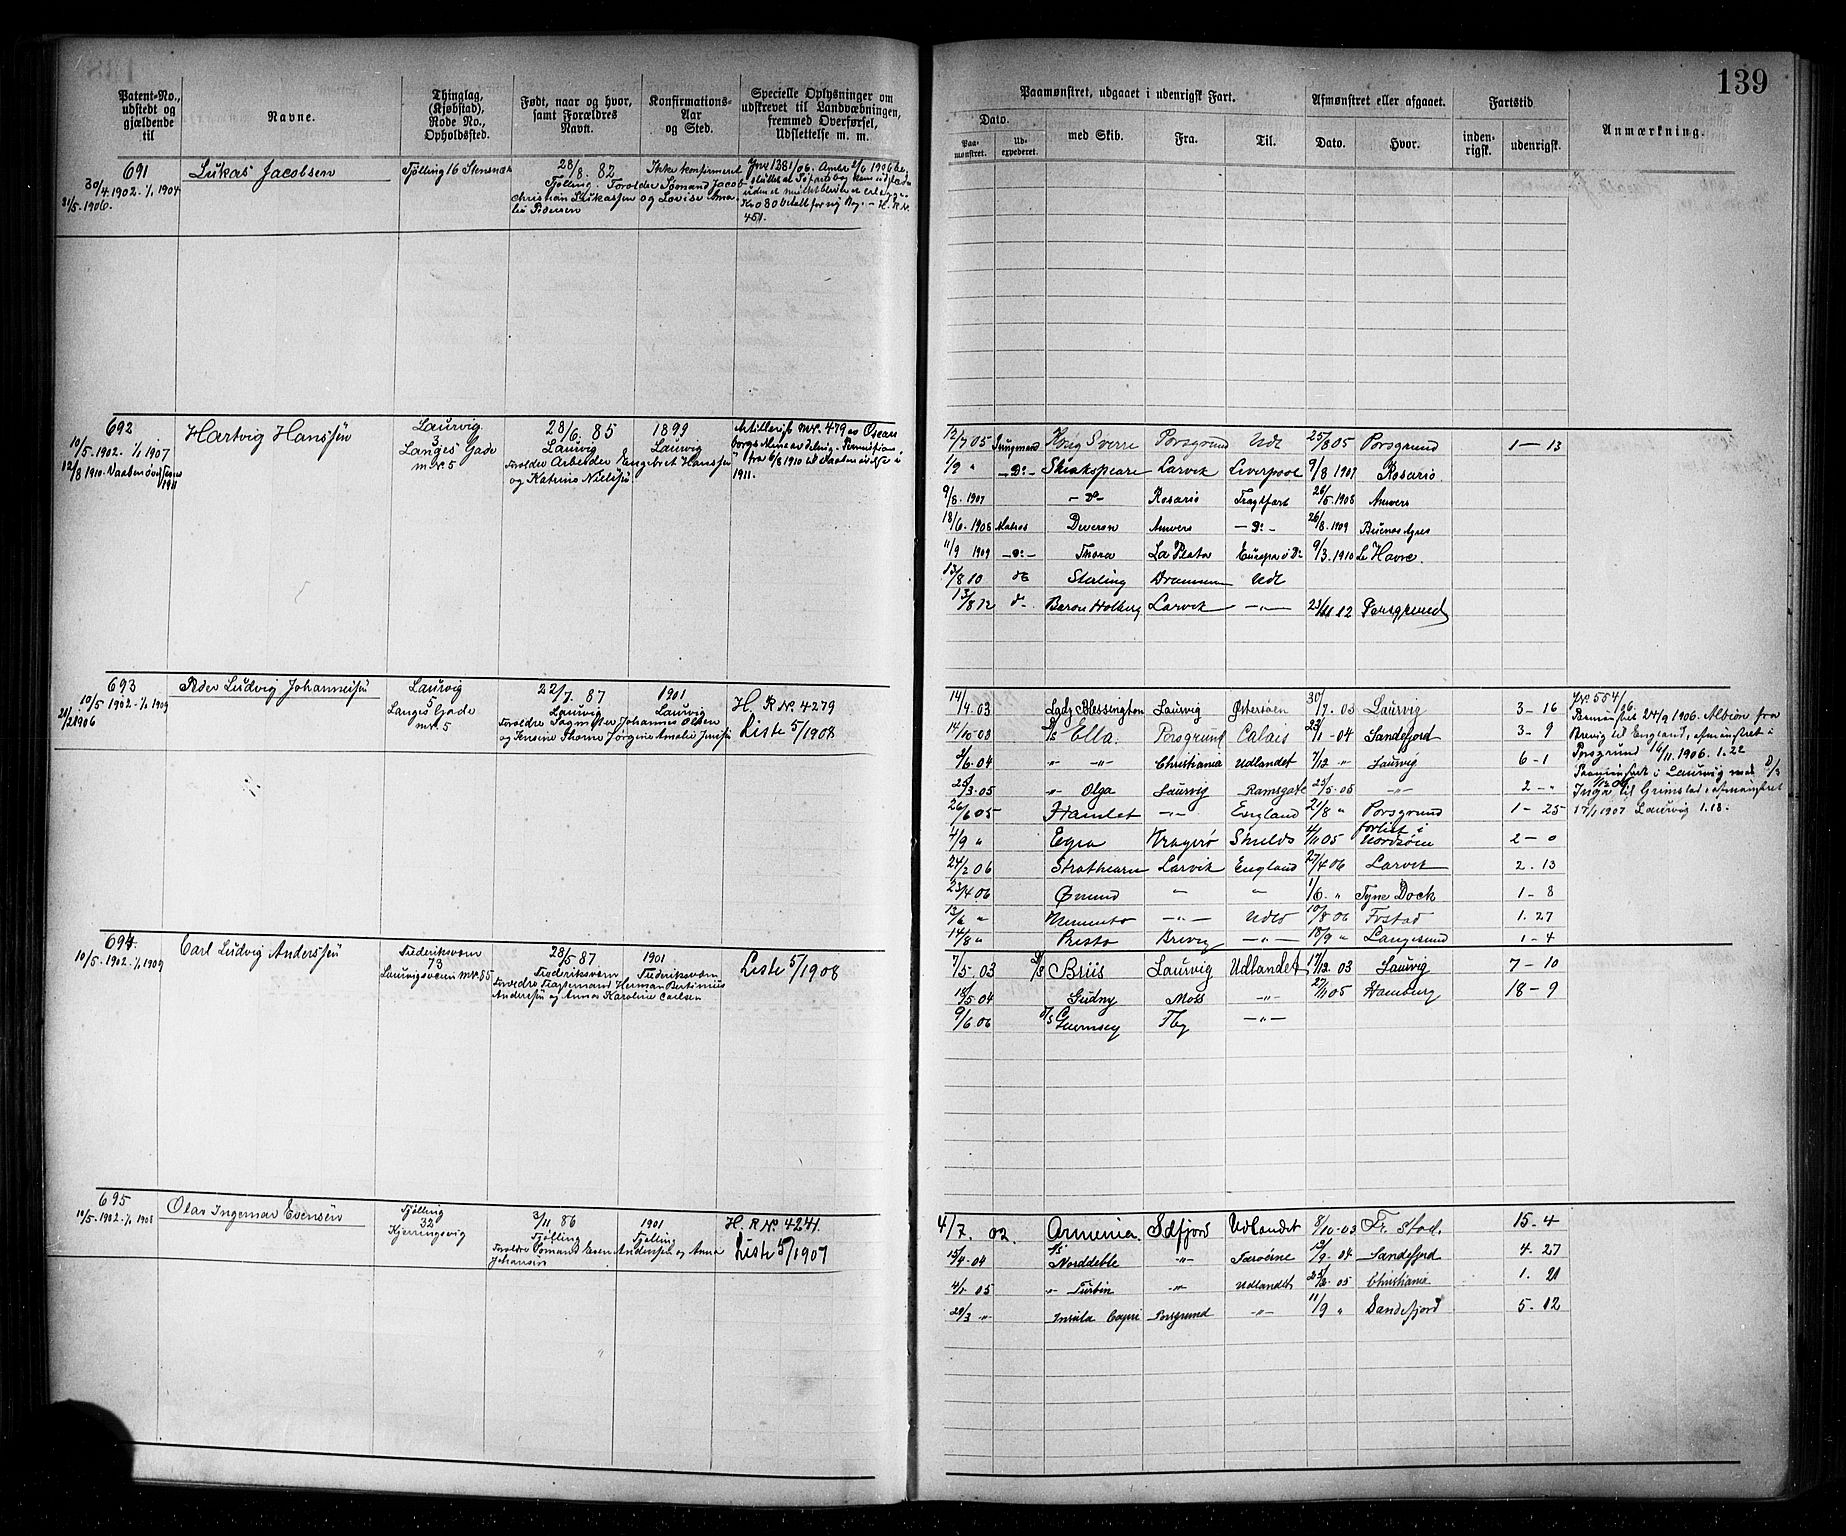 139
Patent-No., udstedt og gjældende til
Navne.
Thinglag, (Kjøbstad), Rode No., Opholdssted.
Født, naar og hvor, samt Forældres Navn.
Konfirmations- Aar og Sted.
Specielle Oplysninger om udskrevet til Landvæbningen, fremmed Overførsel, Udslettelse m. m.
Paamønstret, udgaaet i udenrigsk Fart.
Dato.
Paa- mønstret.
Ud- expederet.
med Skib.
Fra.
Til.
Afmønstret eller afgaaet.
Dato.
Hvor.
Fartstid
inden- rigsk.
udenrigsk.
Anmærkning.
691
30/4 1902. 1/1 1904
21/5. 1906.
Lukas Jacobsen
Tjølling 16 Stensnæs
28/8. 82
Tjølling. Forældre Sømand Jacob
Christian Lukassen og Lovise Ama-
lie Pedersen
Ikke konfirmeret
H. R. Nr. 451.
692
10/5. 1902. 1/1 1907
12/8 1910
1911
Hartvig Hanssen
Laurvig
3
Langes Gade
mr. 5
28/6. 85
Laurvig
Forældre Arbeider Engebret Hanssen
og Katrine Nielsen
1899
Laurvig
Artillerist Mr. 479
fra 6/8 1910
1911.
12/7 05 Jungmand Kong Sverre Porsgrund Udl 25/8 05 Porsgrund 1 - 13
1/9 " - Do - Shakspeare Larvik Liverpool 9/8 1907 Rosario
9/8. 1907 - do - Rosario Fragtfart 28/5. 1908 Anvers
18/6. 1908 Matros Deveron Anvers - Do - 26/8. 1909 Buenos Ayres
11/9 1909 - Do - Thora La Plata Europa 9/3. 1910 Le Havre.
13/8 10 do Sterling Drammen Udl
13/8 12 do Baron Holberg Larvik - " - 23/11 12 Porsgrund
693
10/5 1902. 1/1 1909
21/2 1906
Peder Ludvig Johannessen
Laurvig
5
Langes Gade
mr. 5
22/7. 87
Laurvig
1901
Laurvig
H. R. Nr. 4279
Liste 5/1908
14/4. 03 Lady Blessington Laurvig Østersøen 30/7. 03 Laurvig 3 - 16
14/10. 03 D/S Ella. Porsgrund Calais 23/1 - 04 Sandefjord 3 - 9
2/6. 04 " " Christiania Udlandet 7/12 " Laurvig 6 - 1
25/3. 05 " Olga Laurvig Ramsgate 25/5. 05 - " - 2 - "
26/6 05 Hamlet - " - England 21/8 " Porsgrund 1 - 25
4/9 " Egra Kragerø Shields 4/11 05 forlist i Nordsøen 2 - 0
24/2 06 Strathearn Larvik England 27/4 06 Larvik 2. 13
23/4 06 Ømund " " 1/6. " Tyne Dock 1 - 8
12/6 " Memento - " - Udld 10/8 06 Frstad 1. 27
14/8 " Presto Brevig - " - 18/9 " Langesund 1 - 4
Jr. 554/06.
Paamønstret 24/9 1906. Albion fra
Brevig til England, afmønstret i
Porsgrund 16/11. 1906. 1. 22
Paamønstret i Laurvig med D/S
til Grimstad, afmønstret
17/1 1907 Laurvig 1. 13.
694.
10/5. 1902. 1/1. 1909
Carl Ludvig Anderssen
Frederiksværn
73
Laurvigsveien mr. 85
28/5 87
Frederiksværn
1901
Frederiksværn
Forældre Fragtemand Herman Bertinius
Anderssen og Anna Karoline Carlsen
Liste 5/1908
7/5. 03 D/S Briis Laurvig Udlandet 17/12. 03 Laurvig 7 - 10
18/5 04 Gudny Moss - " - 27/11 05 Hamburg 18 - 9
9/6. 06 D/S Guernsey Fhg - " -
695
10/5. 1902. 1/1. 1908
Olaf Ingemar Evensen
Tjølling
32
Kjerringsvig
3/11 86
Tjølling
1901
Tjølling
Forældre Sømand Even Andersen og Anna
Johansen
H. R. Nr. 4241.
Liste 5/1907
4/7. 02. Armenia Sdfjord Udlandet 8/10 - 03 Fr. Stad. 15 - 4
15/4 - 04 D/S Norddeble " Færøerne 12/9. 04. Sandefjord 4. 27
4/1 05 " Turbin - " - Udlandet 25/2. 05 Christiania 1. 21
29/3 " Insula Capri Porsgrund - " - 11/9 " Sandefjord 5. 12